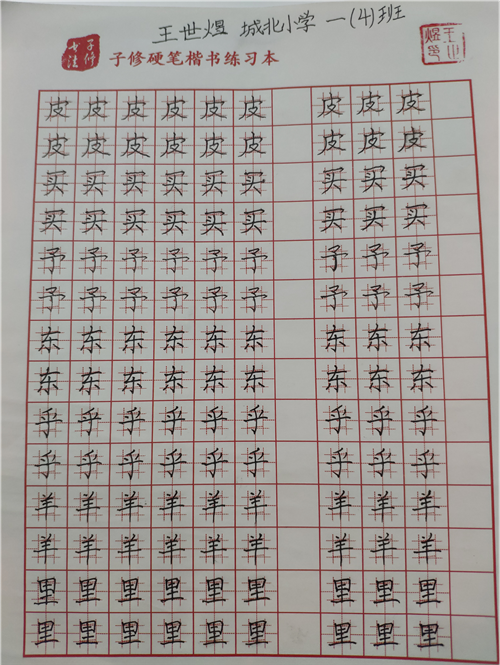 王世煜 城北小学 一(4)班
子修硬笔楷书练习本
皮皮皮皮皮皮 皮皮皮
皮皮皮皮皮皮 皮皮皮
买买买买买买 买买买
买买买买买买 买买买
予予予予予予 予予予
予予予予予予 予予予
东东东东东东 东东东
东东东东东东 东东东
乎乎乎乎乎乎 乎乎乎
乎乎乎乎乎乎 乎乎乎
羊羊羊羊羊羊 羊羊羊
羊羊羊羊羊羊 羊羊羊
里里里里里里 里里里
里里里里里里 里里里